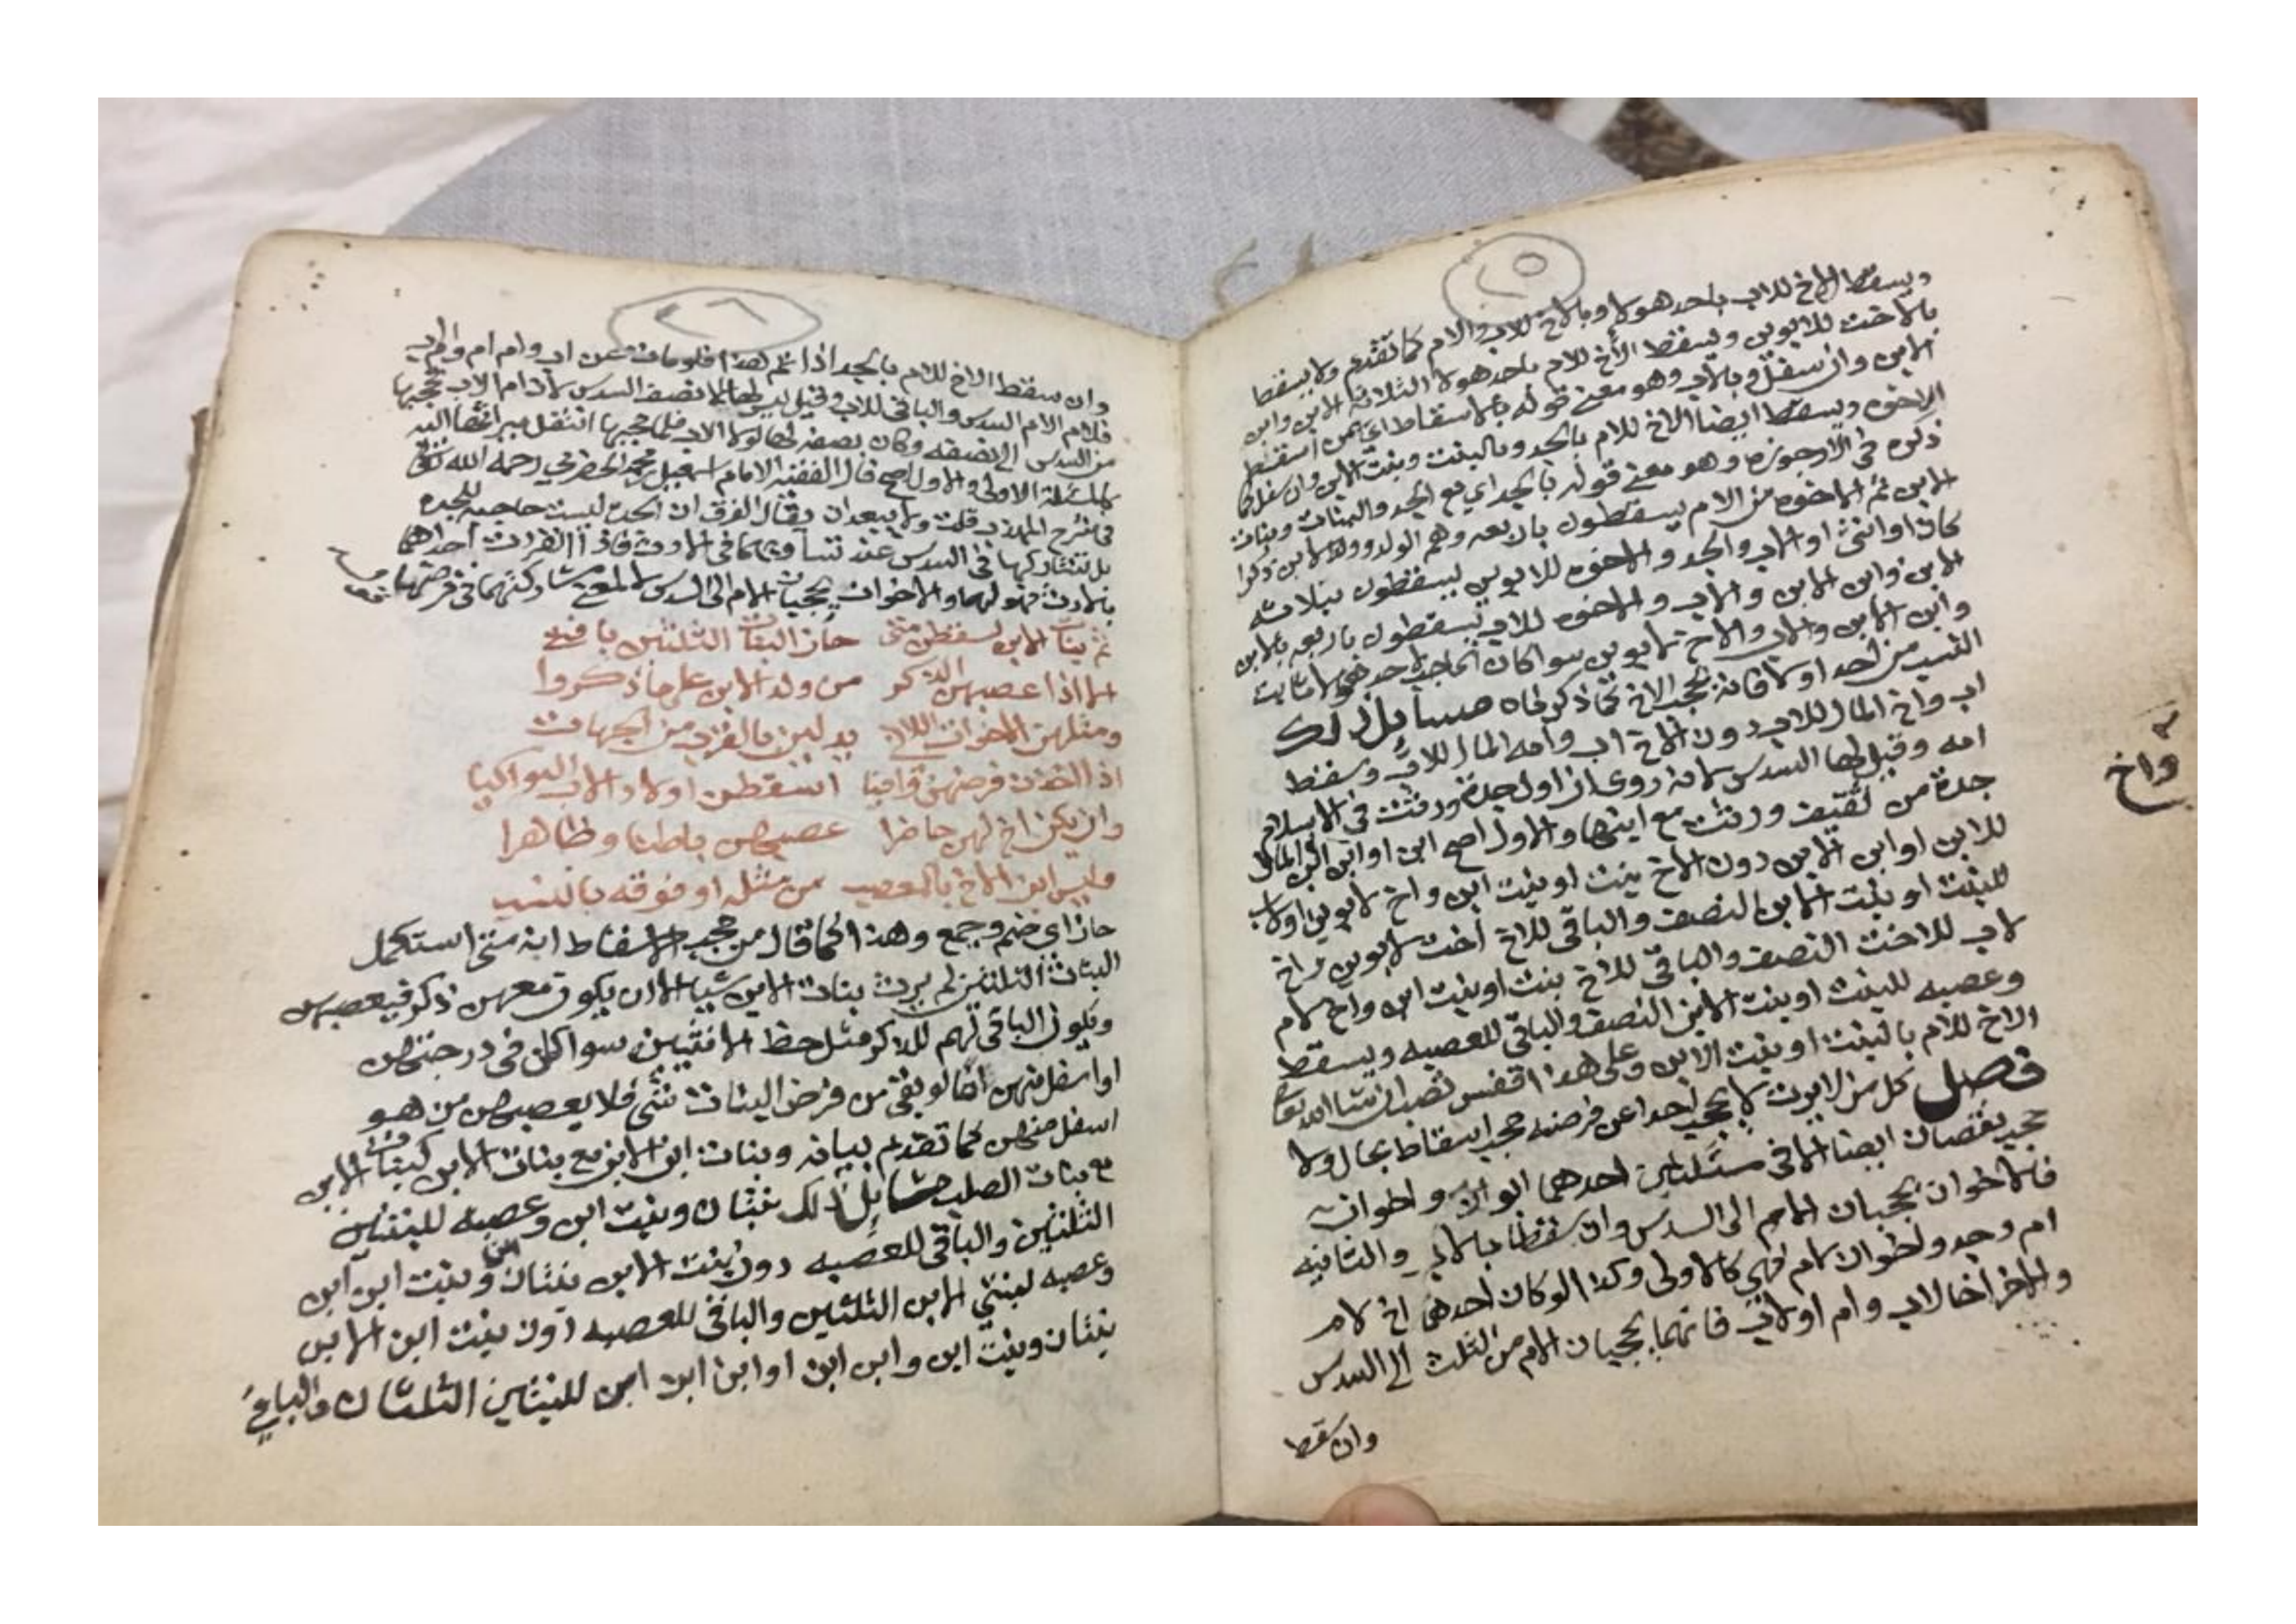 ٢٥
ويسقط الاخ للاب باحد هولا وبالاخ للاب والام كما تقدم ولا يسقط
بالاخت للابوين ويسقط الأخ للام باحد هولا الثلاثة الابن وابن
الابن وان سفل وبالاب وهو معنى قوله بالاسقاط
الاخوه ويسقط ايضا الاخ للام بالجد وبالبنت وبنت الابن وان سفل كما
ذكره في الارجوزه وهو معنى قوله بالجد اي مع الجد والبنات وبنات
الابن ثم الاخوه من الام يسقطون باربعه وهم الولد وولد الابن ذكرا
كان او انثى او الاب والجد والاخوه للابوين يسقطون بثلاثه
الابن وابن الابن والاب والاخوه للاب يسقطون باربعه بالابن
وابن الابن والاب والاخ للابوين سوا كان
النسب من احد او لا فانه يحجب الاخ كما ذكرناه مسايل ذلك
اب واخ المال للاب دون الاخ اب وامه المال للاب وسقط
امه وقيل لها السدس لانه روى ان اول جدة ورثت في الاسلام
جدة من ثقيف ورثت مع ابنها والاول اصح ابن او ابن ابن المال
للابن او ابن الابن دون الاخ بنت او بنت ابن واخ لابوين اولاب
للبنت او بنت الابن النصف والباقي للاخ أخت لابوين واخ
لاب للاخت النصف والباقي للاخ بنت او بنت ابن واخ لام
وعصبه للبنت او بنت الابن النصف والباقي للعصبه ويسقط
الاخ للام بالبنت او بنت الابن وعلى هذا فقس تصب ان شا الله تعا
فصل كل من لا يرث لا يحجب احدا عن فرضه حجب اسقاط بحال ولا
حجب نقصان ايضا الا في مسئلتين احدهما ابوان واخوان
فالاخوان يحجبان الام الى السدس وان سقطا بالاب والثانيه
ام وجد واخوان لام فهي كالاولى وكذا لو كان احدهما اخ لام
والاخر اخا لاب وام او لاب فانهما يحجبان الام من الثلث الى السدس
وان سقط
واخ
٢٦
وان سقط الاخ للام بالجد اذا علم هذا فلو مات عن اب وام ام وام اب
فلام الام السدس والباقي للاب وقيل ليس لها الا نصف السدس لان ام الاب تحجبها
من السدس الى نصفه وكان نصفه لها لولا الاب فلما حجبها انتقل ميراثها اليه
كالمسئلة الاولى والاول اصح قال الفقيه الامام اسمعيل بن محمد الحضرمي رحمه الله تعالى
في شرح المهذب قلت ولا يبعد ان يقال الفرق ان الجدة ليست حاجبه للجده
بل تشاركها في السدس عند تساويهما في الارث فاذا انفردت احداهما
بالارث فهو لها والاخوان يحجبان الام الى السدس لا لمعنى مشاركتهما في فرضها
ثم بنات الابن يسقطن متى حاز البنات الثلثين يا فتى
الا اذا عصبهن الذكر من ولد الابن على ما ذكروا
ومثلهن الاخوات اللاتي يدلين بالقرب من الجهات
اذا اخذن فرضهن وافيا اسقطن اولاد الاب البواكيا
وان يكن اخ لهن حاضرا عصبهن باطنا وظاهرا
وليس ابن الاخ بالمعصب من مثله او فوقه بالنسب
حاز اي ضم وجمع وهذا كما قال من حجب الاسقاط انه متى استكمل
البنات الثلثين لم يرث بنات الابن شيا الا ان يكون معهن ذكر فيعصبهن
ويكون الباقي لهم للذكر مثل حظ الانثيين سوا كان في درجتهن
او اسفل منهن اما لو بقي من فرض البنات شي فلا يعصبهن من هو
اسفل منهن كما تقدم بيانه وبنات ابن الابن مع بنات الابن كبنات الابن
مع بنات الصلب مسايل ذلك بنتان وبنت ابن وعصبه للبنتين
الثلثين والباقي للعصبه دون بنت الابن بنتان ابن وبنت ابن ابن
وعصبه لبنتي الابن الثلثين والباقي للعصبه دون بنت ابن الابن
بنتان وبنت ابن وابن ابن او ابن ابن ابن للبنتين الثلثان والباقي